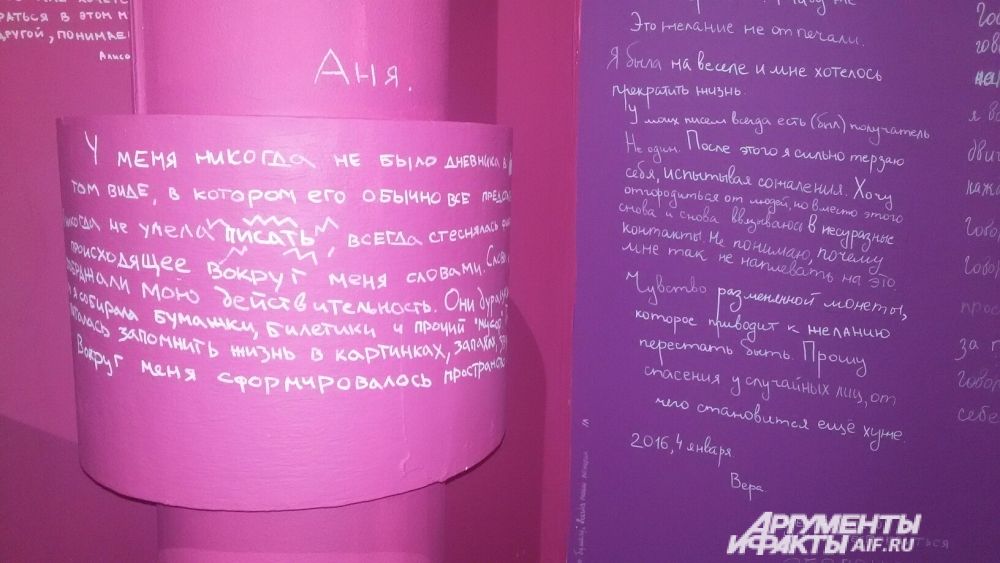 РАТЬСЯ В ЭТОМ М
ДРУГОЙ, ПОНИМАЕ
Алиса
Аня.
У МЕНЯ НИКОГДА НЕ БЫЛО ДНЕВНИКА В
ТОМ ВИДЕ, В КОТОРОМ ЕГО ОБЫЧНО ВСЕ ПРЕДС
НИКОГДА НЕ УМЕЛА ПИСАТЬ, ВСЕГДА СТЕСНЯЛАСЬ
ПРОИСХОДЯЩЕЕ ВОКРУГ МЕНЯ СЛОВАМИ. СЛОВА
МОЮ ДЕЙСТВИТЕЛЬНОСТЬ. ОНИ
Я СОБИРАЛА БУМАЖКИ, БИЛЕТИКИ И ПРОЧИЙ "МУСОР"
ЗАПОМНИТЬ ЖИЗНЬ В КАРТИНКАХ, ЗАПАХАХ,
ВОКРУГ МЕНЯ СФОРМИРОВАЛОСЬ ПРОСТРАНСТВО
Это желание не от печали.
Я была на веселе и мне хотелось
прекратить жизнь.
У моих писем всегда есть (был) получатель
Не один. После этого я сильно терзаю
себя, испытывая сожаления. Хочу
отгородиться от людей, но вместо этого
снова и снова ввязываюсь в несуразные
контакты. Не понимаю, почему
мне так не наплевать на это.
Чувство разменянной монеты,
которое приводит к желанию
перестать быть. Прошу
спасения у случайных лиц, от
чего становится ещё хуже.
2016, 4 января
Вера
гово
я в
двит
кажд
Говор
Говор
за п
говор
себе
АРГУМЕНТЫ
И ФАКТЫ AIF.RU